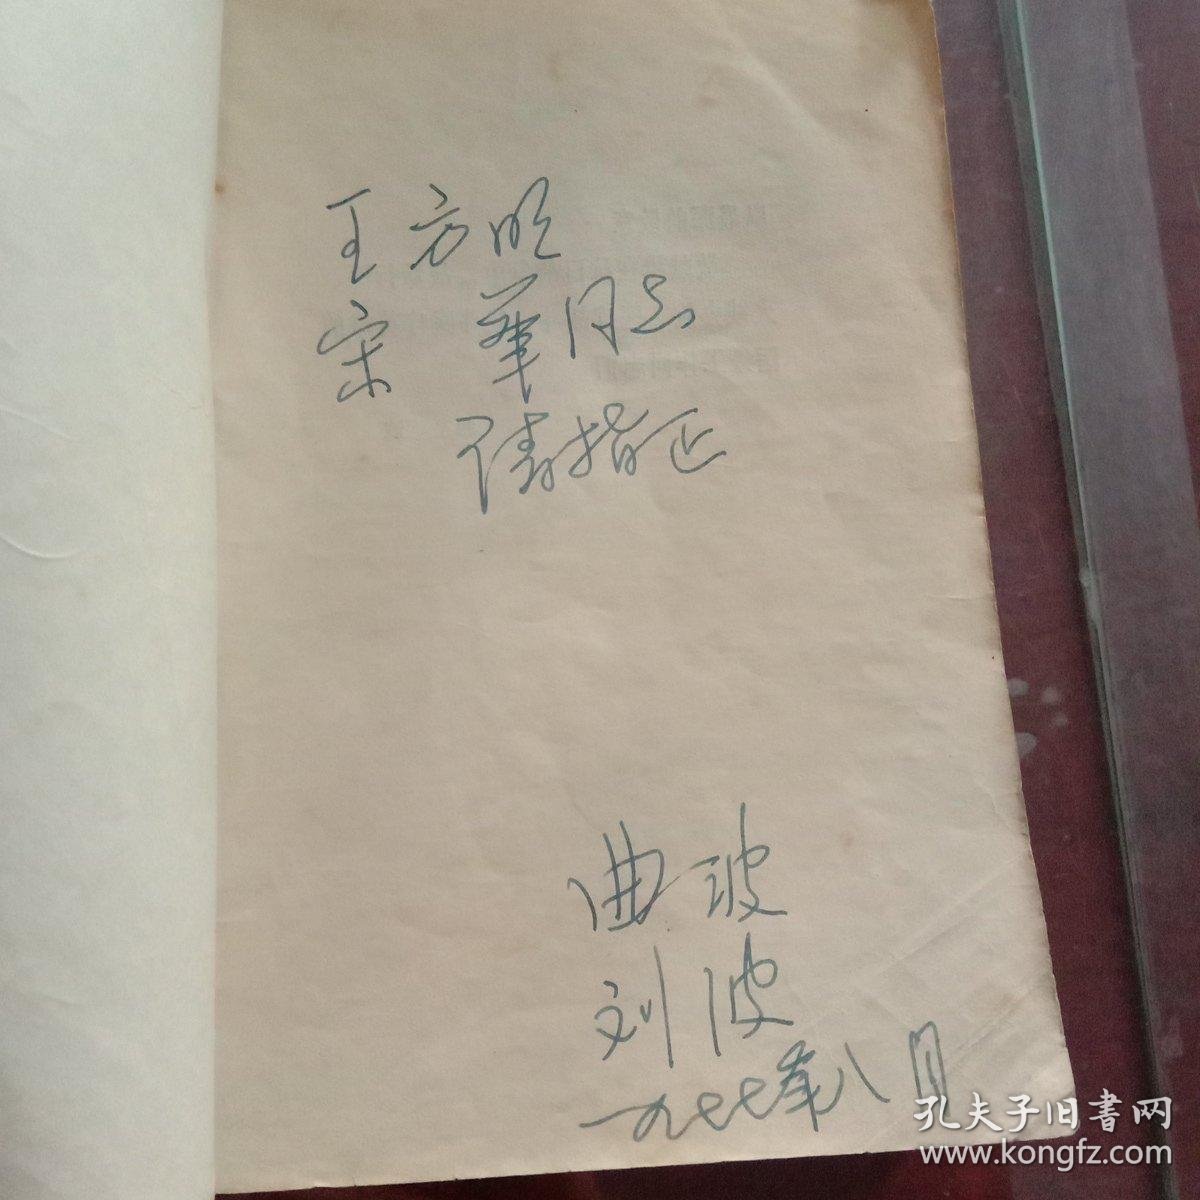 王方明
宋 華同志
请指正
曲波
刘波
一九七七年八月
孔夫子旧書网
www.kongfz.com